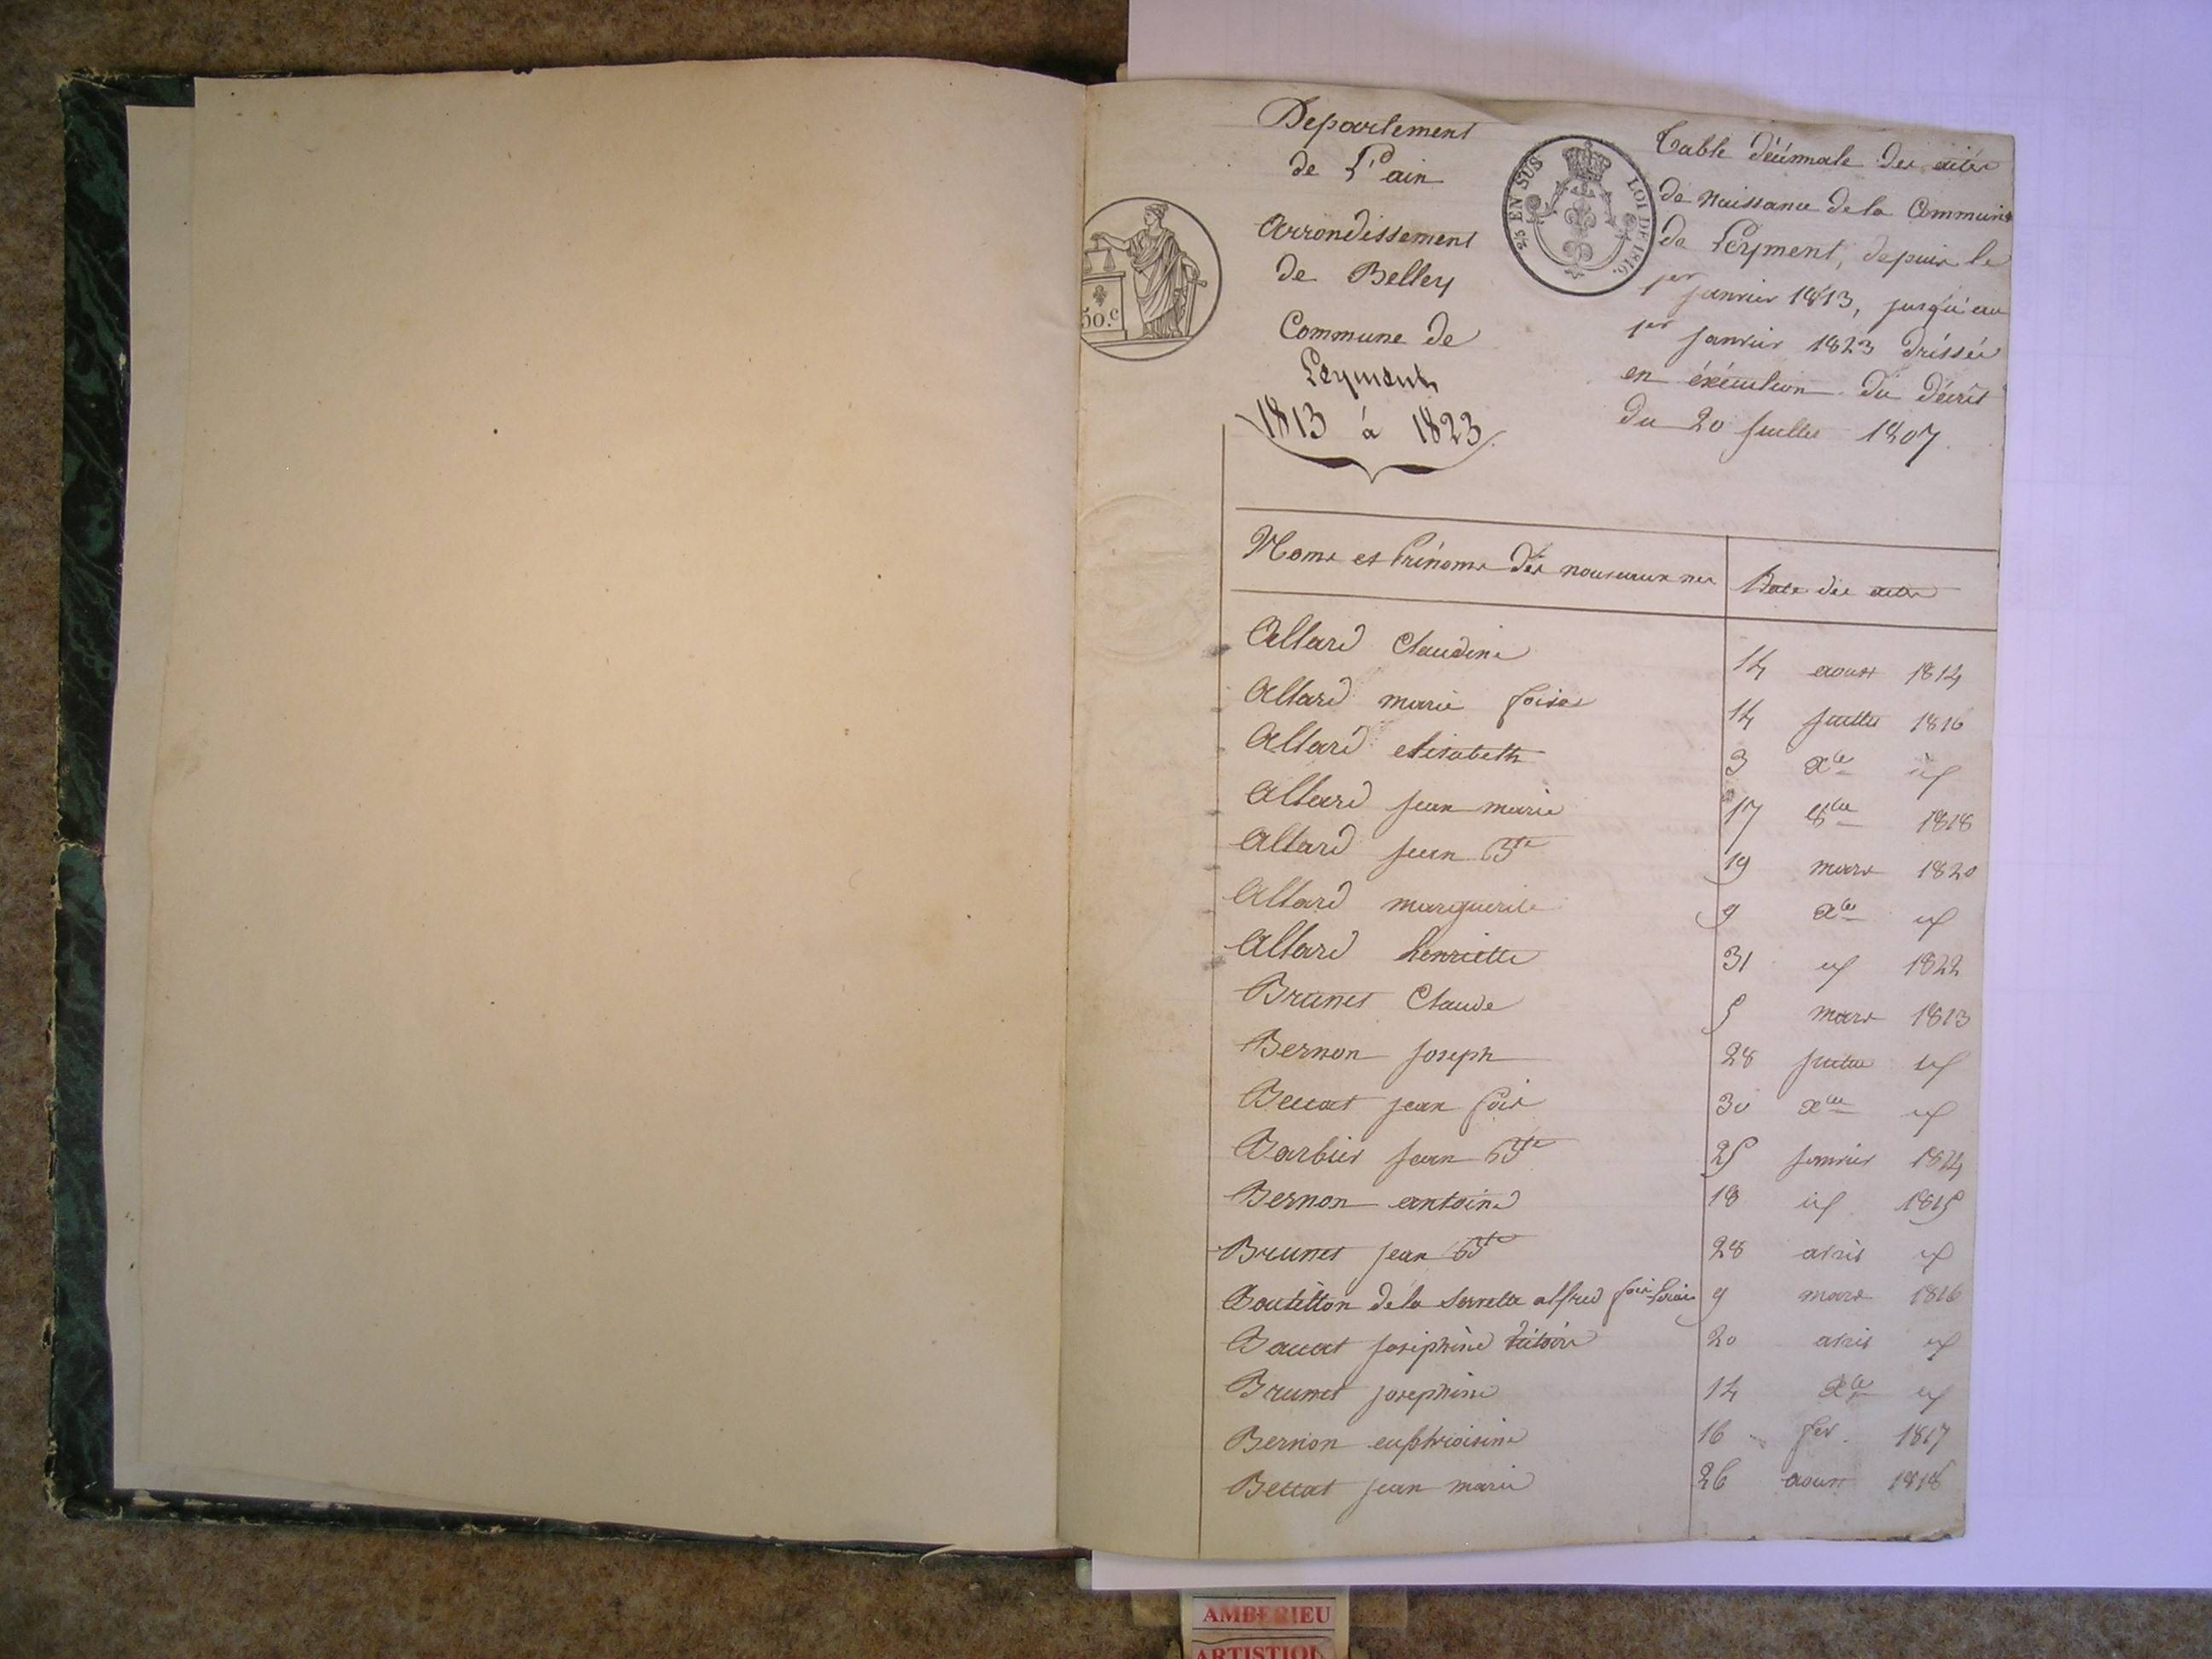 Departement
de L'ain
Arrondissement
de Belley
Commune de
Leyment
1813 à 1823
50.c
25 EN SUS
LOI DE 1816.
Table décennale des actes
de Naissance de la Commune
de Leyment, depuis le
1er janvier 1813, jusqu'au
1er janvier 1823 dréssée
en éxécution du décret
du 20 juillet 1807.
Noms et Prénoms des nouveaux nes Date des actes
Allard Claudine 14 aoust 1814
Allard marie foise 14 juillet 1816
Allard elisabeth 3 Xbre id
Allard jean marie 17 8bre 1818
Allard jean Bte 19 mars 1820
Allard marguerite 9 Xbre id
Allard henriette 31 id 1822
Brunet Claude 5 mars 1813
Bernon joseph 28 juillet id
Beccat jean fois 30 Xbre id
Barbier jean Bte 25 janvier 1814
Bernon antoine 18 id 1815
Brunet jean Bte 28 avril id
Boutillon de la Serrette alfred fois 9 mars 1816
Baccat joséphine victoire 20 avril id
Brunet josephine 14 Xbre id
Bernon euphroisine 16 fer. 1817
Beccat jean marie 26 aoust 1818
AMBERIEU